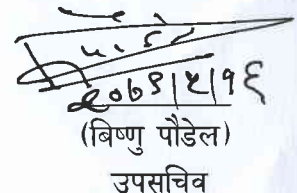 २०७९|५|१६
(बिष्णु पौडेल)
उपसचिव